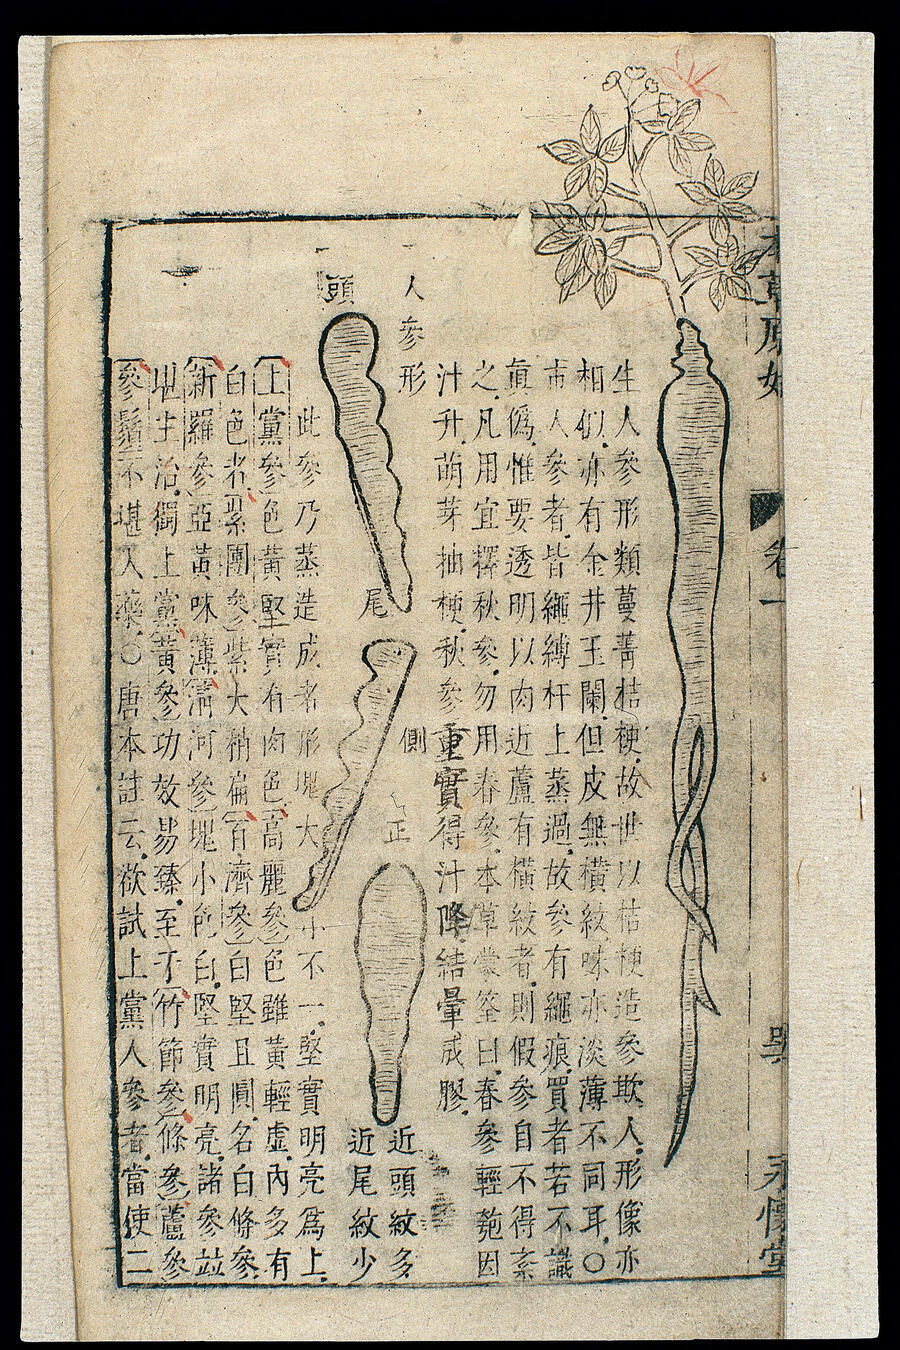 生人參形類蔓菁桔梗故世以桔梗造參欺人形像亦
相似亦有金井玉闌但皮無橫紋味亦淡薄不同耳〇
市人參者皆繩縛杆上蒸過故參有繩痕買者若不識
真偽惟要透明以肉近蘆有橫紋者則假參自不得紊
之凡用宜擇秋參勿用春參本草蒙筌曰春參輕匏因
汁升萌芽抽梗秋參重實得汁降結暈成膠
人參形
頭
尾
側
正
近頭紋多
近尾紋少
此參乃蒸造成者形塊大小不一堅實明亮爲上
上黨參色黃堅實有肉色高麗參色雖黃輕虛內多有
白色者緊團參紫大稍扁百濟參白堅且圓名白條參
新羅參亞黃味薄清河參塊小色白堅實明亮諸參並
堪生治獨上黨黃參功效易臻至于竹節參條參蘆參
參鬚不堪入藥〇唐本註云欲試上黨人參者當使二
本草原始
卷一
永懷堂